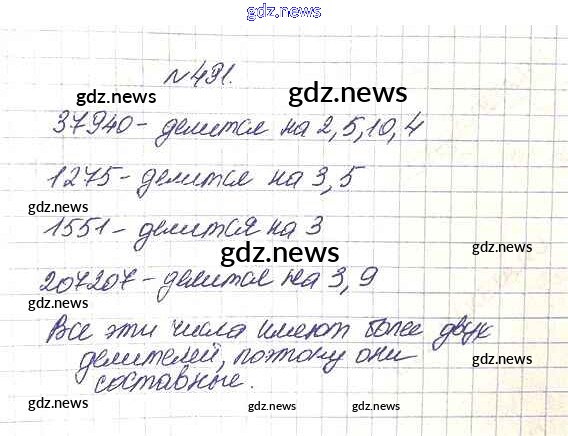 gdz.news
№491.
gdz.news gdz.news
37940 - делится на 2, 5, 10, 4
1275 - делится на 3, 5
gdz.news
1551 - делится на 3
gdz.news gdz.news
207207 - делится на 3, 9
gdz.news
Все эти числа имеют более двух
делителей, поэтому они
gdz.news
составные.
gdz.news gdz.news gdz.news